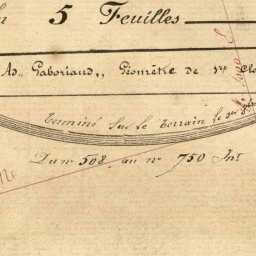 5 Feuilles
Ad. Gaboriaud,, Géomètre de 1re Cla
Terminé sur le terrain le
Du no 508 au no 750 Int